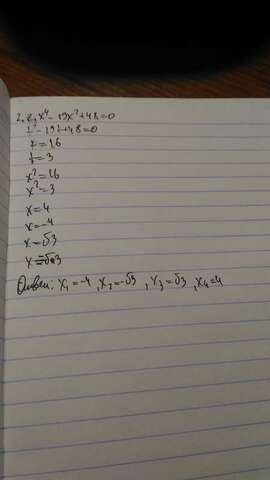 2. x⁴ - 19x² + 48 = 0
t² - 19t + 48 = 0
t = 16
t = 3
x² = 16
x² = 3
x = 4
x = -4
x = √3
x = -√3
Ответ: x₁ = -4, x₂ = -√3, x₃ = √3, x₄ = 4